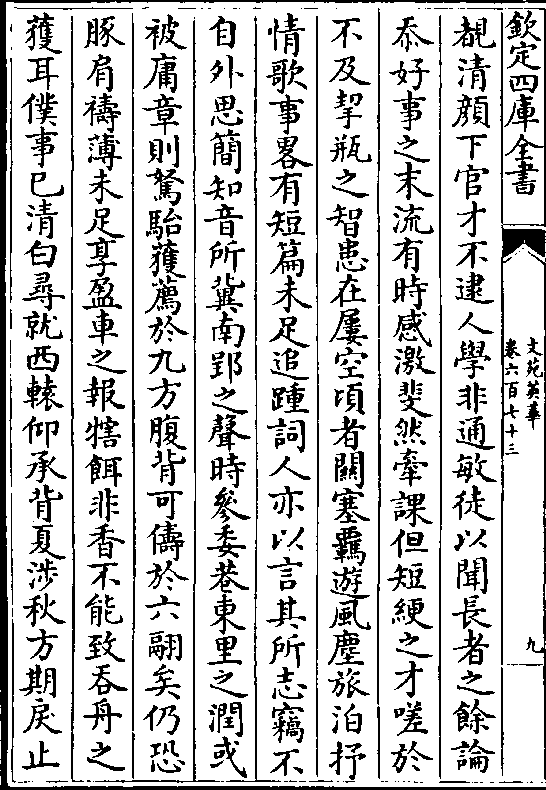 欽定四庫全書
文苑英華
卷六百七十三
九
覩清顔下官才不逮人學非通敏徒以聞長者之餘論
忝好事之末流有時感激斐然牽課但短綆之才嗟於
不及挈瓶之智患在屢空項者關塞羈遊風塵旅泊抒
情歌事畧有短篇未足追踵詞人亦以言其所志竊不
自外思簡知音所兾南郢之聲時參委巷東里之潤或
被庸章則駑駘獲薦於九方腹背可儔於六翮矣仍恐
豚肩禱薄未足享盈車之報犗餌非香不能致吞舟之
蒦耳僕事已清白尋就西轅仰承背夏涉秋方期戾止